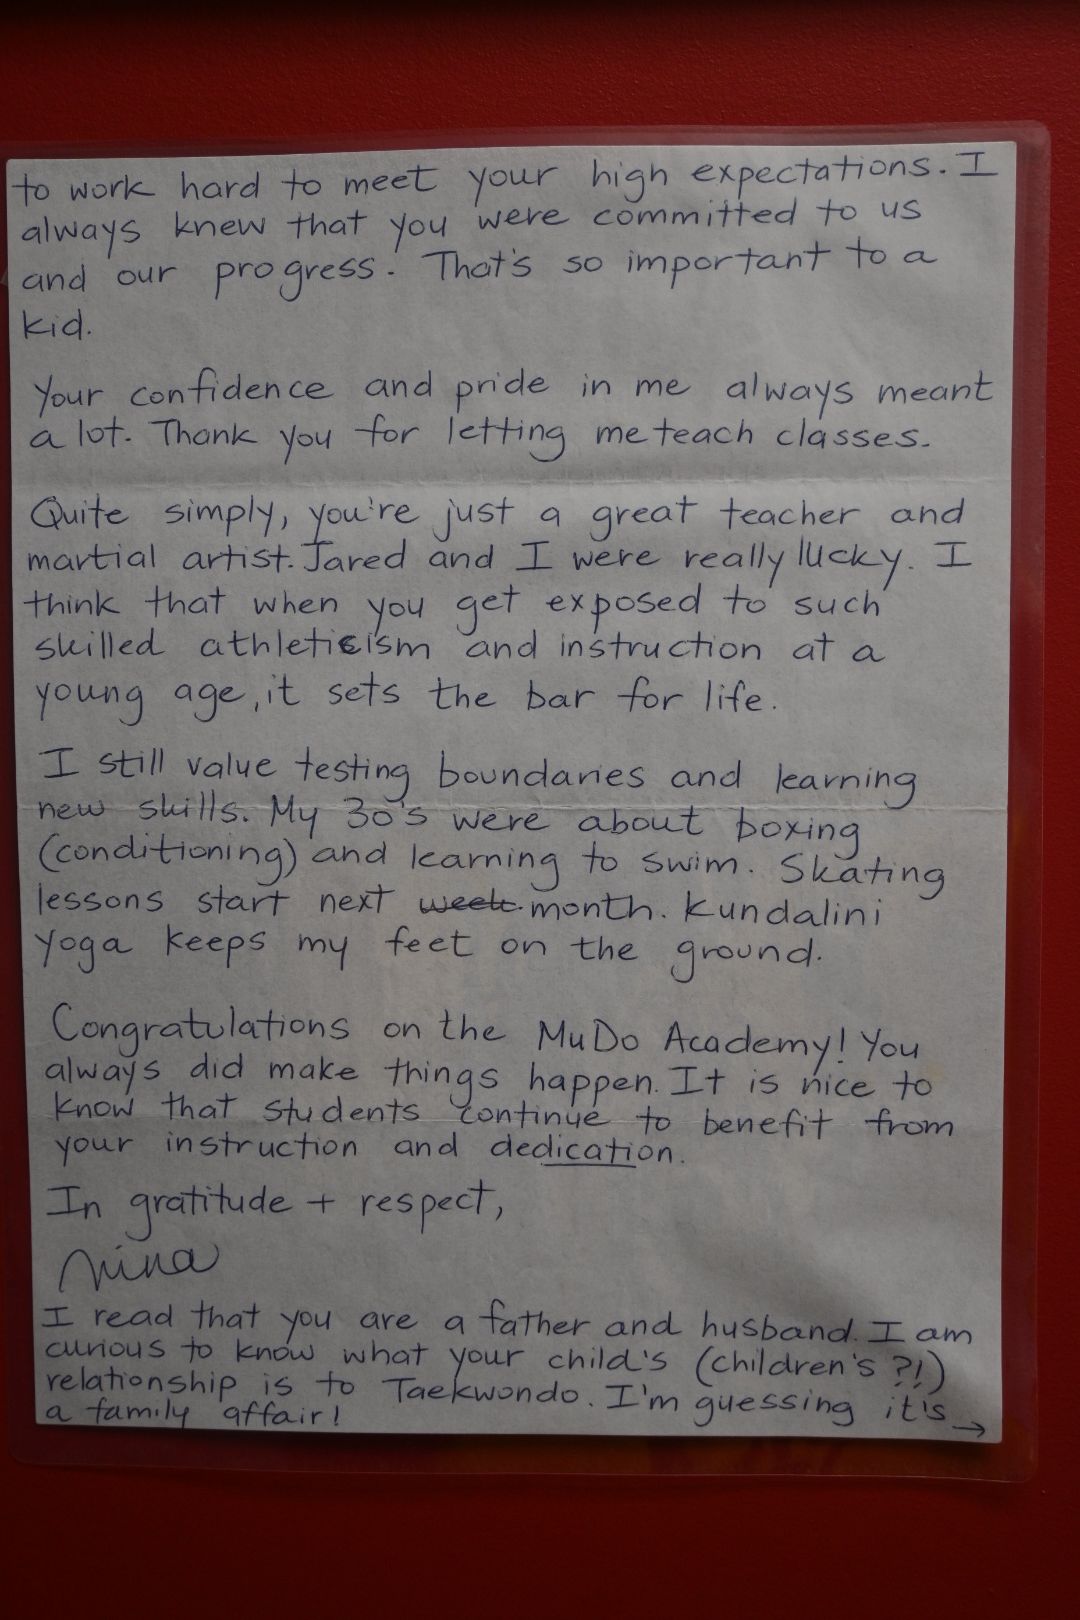 to work hard to meet your high expectations. I
always knew that you were committed to us
and our progress. That's so important to a
kid.
Your confidence and pride in me always meant
a lot. Thank you for letting me teach classes.
Quite simply, you're just a great teacher and
martial artist. Jared and I were really lucky. I
think that when you get exposed to such
skilled athleticism and instruction at a
young age, it sets the bar for life.
I still value testing boundaries and learning
new skills. My 30's were about boxing
(conditioning) and learning to swim. Skating
lessons start next week month. Kundalini
yoga keeps my feet on the ground.
Congratulations on the MuDo Academy! You
always did make things happen. It is nice to
know that students continue to benefit from
your instruction and dedication.
In gratitude + respect,
Nina
I read that you are a father and husband. I am
curious to know what your child's (children's ?!)
relationship is to Taekwondo. I'm guessing it's →
a family affair!